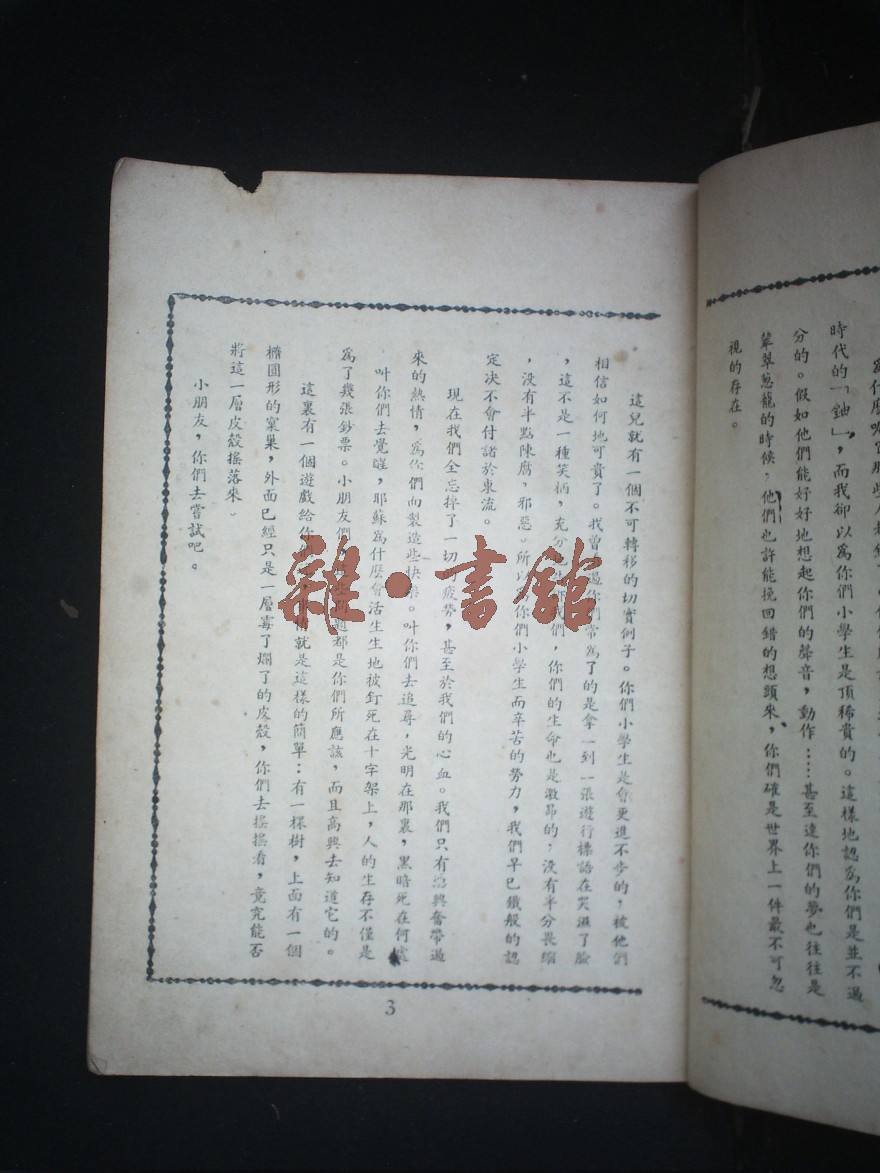 時代的「鈾」，而我卻以爲你們小學生是頂稀貴的。這樣地認爲你們是並不過
分的。假如他們能好好地想起你們的聲音，動作……甚至連你們的夢也往往是
翠翠葱蘢的時候，他們也許能挽回錯的想頭來，你們確是世界上一件最不可忽
視的存在。
這兒就有一個不可轉移的切實例子。你們小學生是會更進不步的，被他們
相信如何地可貴了。我曾過你們常爲了的是拿一到一張遊行標語在笑濕了臉
，這不是一種笑柄，充分我們，你們的生命也是激昂的，沒有半分畏縮
，沒有半點陳腐，邪惡。所以你們小學生而辛苦的勞力，我們早已鐵般的認
定决不會付諸於東流。
現在我們全忘掉了一切的疲勞，甚至於我們的心血。我們只有興奮帶過
來的熱情，爲你們而製造些快樂。叫你們去追尋，光明在那裏，黑暗死在何處
叫你們去覺醒，耶蘇爲什麼會活生生地被釘死在十字架上，人的生存不僅是
爲了幾張鈔票。小朋友們，題都是你們所應該，而且高興去知道它的。
這裏有一個遊戲給你們，就是這樣的簡單：有一棵樹，上面有一個
橢圓形的窠巢，外面已經只是一層霉了爛了的皮殼，你們去搖搖看，竟究能否
將這一層皮殼搖落來。
小朋友，你們去嘗試吧。
3
雜·書館